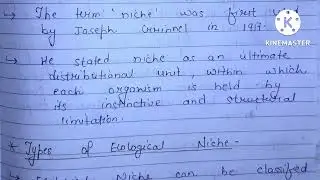 → The term 'niche' was first
by Joseph Grinnel in 1917.
→ He stated niche as an ultimate
distributional unit, within which
each organism is held by
its instinctive and structural
limitation.
* Types of Ecological Niche -
Niche can be classified
KINEMASTER